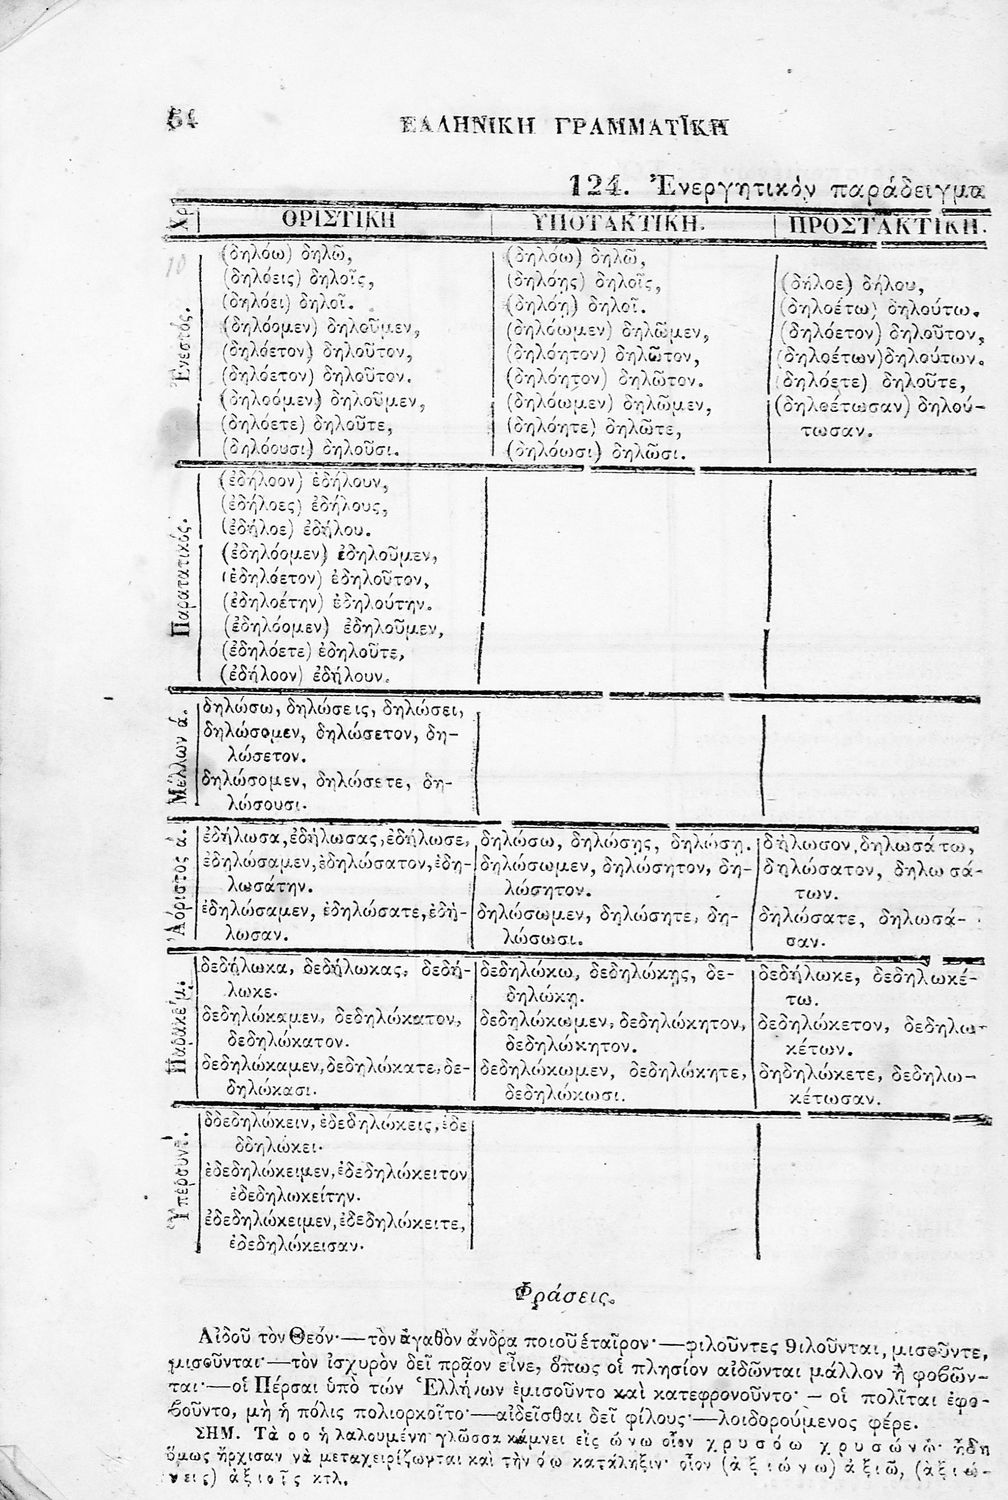 54
ΕΛΛΗΝΙΚΗ ΓΡΑΜΜΑΤΙΚΗ
124. Ἐνεργητικὸν παράδειγμα
Χρ.
ΟΡΙΣΤΙΚΗ
ΥΠΟΤΑΚΤΙΚΗ.
ΠΡΟΣΤΑΚΤΙΚΗ.
10
Ἐνεστός.
(δηλόω) δηλῶ,
(δηλόεις) δηλοῖς,
(δηλόει) δηλοῖ.
(δηλόομεν) δηλοῦμεν,
(δηλόετον) δηλοῦτον,
(δηλόετον) δηλοῦτον.
(δηλοόμεν) δηλοῦμεν,
(δηλόετε) δηλοῦτε,
(δηλόουσι) δηλοῦσι.
(δηλόω) δηλῶ,
(δηλόῃς) δηλοῖς,
(δηλόῃ) δηλοῖ.
(δηλόωμεν) δηλῶμεν,
(δηλόητον) δηλῶτον,
(δηλόητον) δηλῶτον.
(δηλόωμεν) δηλῶμεν,
(δηλόητε) δηλῶτε,
(δηλόωσι) δηλῶσι.
(δήλοε) δήλου,
(δηλοέτω) δηλούτω.
(δηλόετον) δηλοῦτον,
(δηλοέτων)δηλούτων.
(δηλόετε) δηλοῦτε,
(δηλοέτωσαν) δηλού-
τωσαν.
Παρατατικός.
(ἐδήλοον) ἐδήλουν,
(ἐδήλοες) ἐδήλους,
(ἐδήλοε) ἐδήλου.
(ἐδηλόομεν) ἐδηλοῦμεν,
(ἐδηλόετον) ἐδηλοῦτον,
(ἐδηλοέτην) ἐδηλούτην.
(ἐδηλόομεν) ἐδηλοῦμεν,
(ἐδηλόετε) ἐδηλοῦτε,
(ἐδήλοον) ἐδήλουν.
Μέλλων ά.
δηλώσω, δηλώσεις, δηλώσει,
δηλώσομεν, δηλώσετον, δη-
λώσετον.
δηλώσομεν, δηλώσετε, δη-
λώσουσι.
Ἀόριστος ά.
ἐδήλωσα, ἐδήλωσας, ἐδήλωσε,
ἐδηλώσαμεν, ἐδηλώσατον, ἐδη-
λωσάτην.
ἐδηλώσαμεν, ἐδηλώσατε, ἐδή-
λωσαν.
δηλώσω, δηλώσῃς, δηλώσῃ.
δηλώσωμεν, δηλώσητον, δη-
λώσητον.
δηλώσωμεν, δηλώσητε, δη-
λώσωσι.
δήλωσον, δηλωσάτω,
δηλώσατον, δηλωσά-
των.
δηλώσατε, δηλωσά-
σαν.
Παρακείμ.
δεδήλωκα, δεδήλωκας, δεδή-
λωκε.
δεδηλώκαμεν, δεδηλώκατον,
δεδηλώκατον.
δεδηλώκαμεν, δεδηλώκατε, δε-
δηλώκασι.
δεδηλώκω, δεδηλώκῃς, δε-
δηλώκῃ.
δεδηλώκωμεν, δεδηλώκητον,
δεδηλώκητον.
δεδηλώκωμεν, δεδηλώκητε,
δεδηλώκωσι.
δεδήλωκε, δεδηλωκέ-
τω.
δεδηλώκετον, δεδηλω-
κέτων.
δηδηλώκετε, δεδηλω-
κέτωσαν.
Ὑπερσυντ.
δδεδηλώκειν, ἐδεδηλώκεις, ἐδε
δδηλώκει.
ἐδεδηλώκειμεν, ἐδεδηλώκειτον
ἐδεδηλωκείτην.
ἐδεδηλώκειμεν, ἐδεδηλώκειτε,
ἐδεδηλώκεισαν.
Φράσεις.
Αἰδοῦ τὸν Θεόν·—τὸν ἀγαθὸν ἄνδρα ποιοῦ ἑταῖρον·—φιλοῦντες θιλοῦνται, μισοῦντε,
μισοῦνται·—τὸν ἰσχυρὸν δεῖ πρᾶον εἶνε, ὅπως οἱ πλησίον αἰδῶνται μάλλον ἢ φοβῶν-
ται·—οἱ Πέρσαι ὑπὸ τών Ἑλλήνων ἐμισοῦντο καὶ κατεφρονοῦντο· — οἱ πολῖται ἐφο-
βοῦντο, μὴ ἡ πόλις πολιορκοῖτο·—αἰδεῖσθαι δεῖ φίλους·—λοιδορούμενος φέρε.
ΣΗΜ. Τὰ ο ο ἡ λαλουμένη γλῶσσα κάμνει εἰς ώνω οἷον χρυσόω χρυσώνω· ἤδη
ὅμως ἤρχισαν νὰ μεταχειρίζωνται καὶ τὴν όω κατάληξιν· οἷον (ἀξιώνω) ἀξιῶ, (ἀξιώ-
νεις) ἀξιοῖς κτλ.